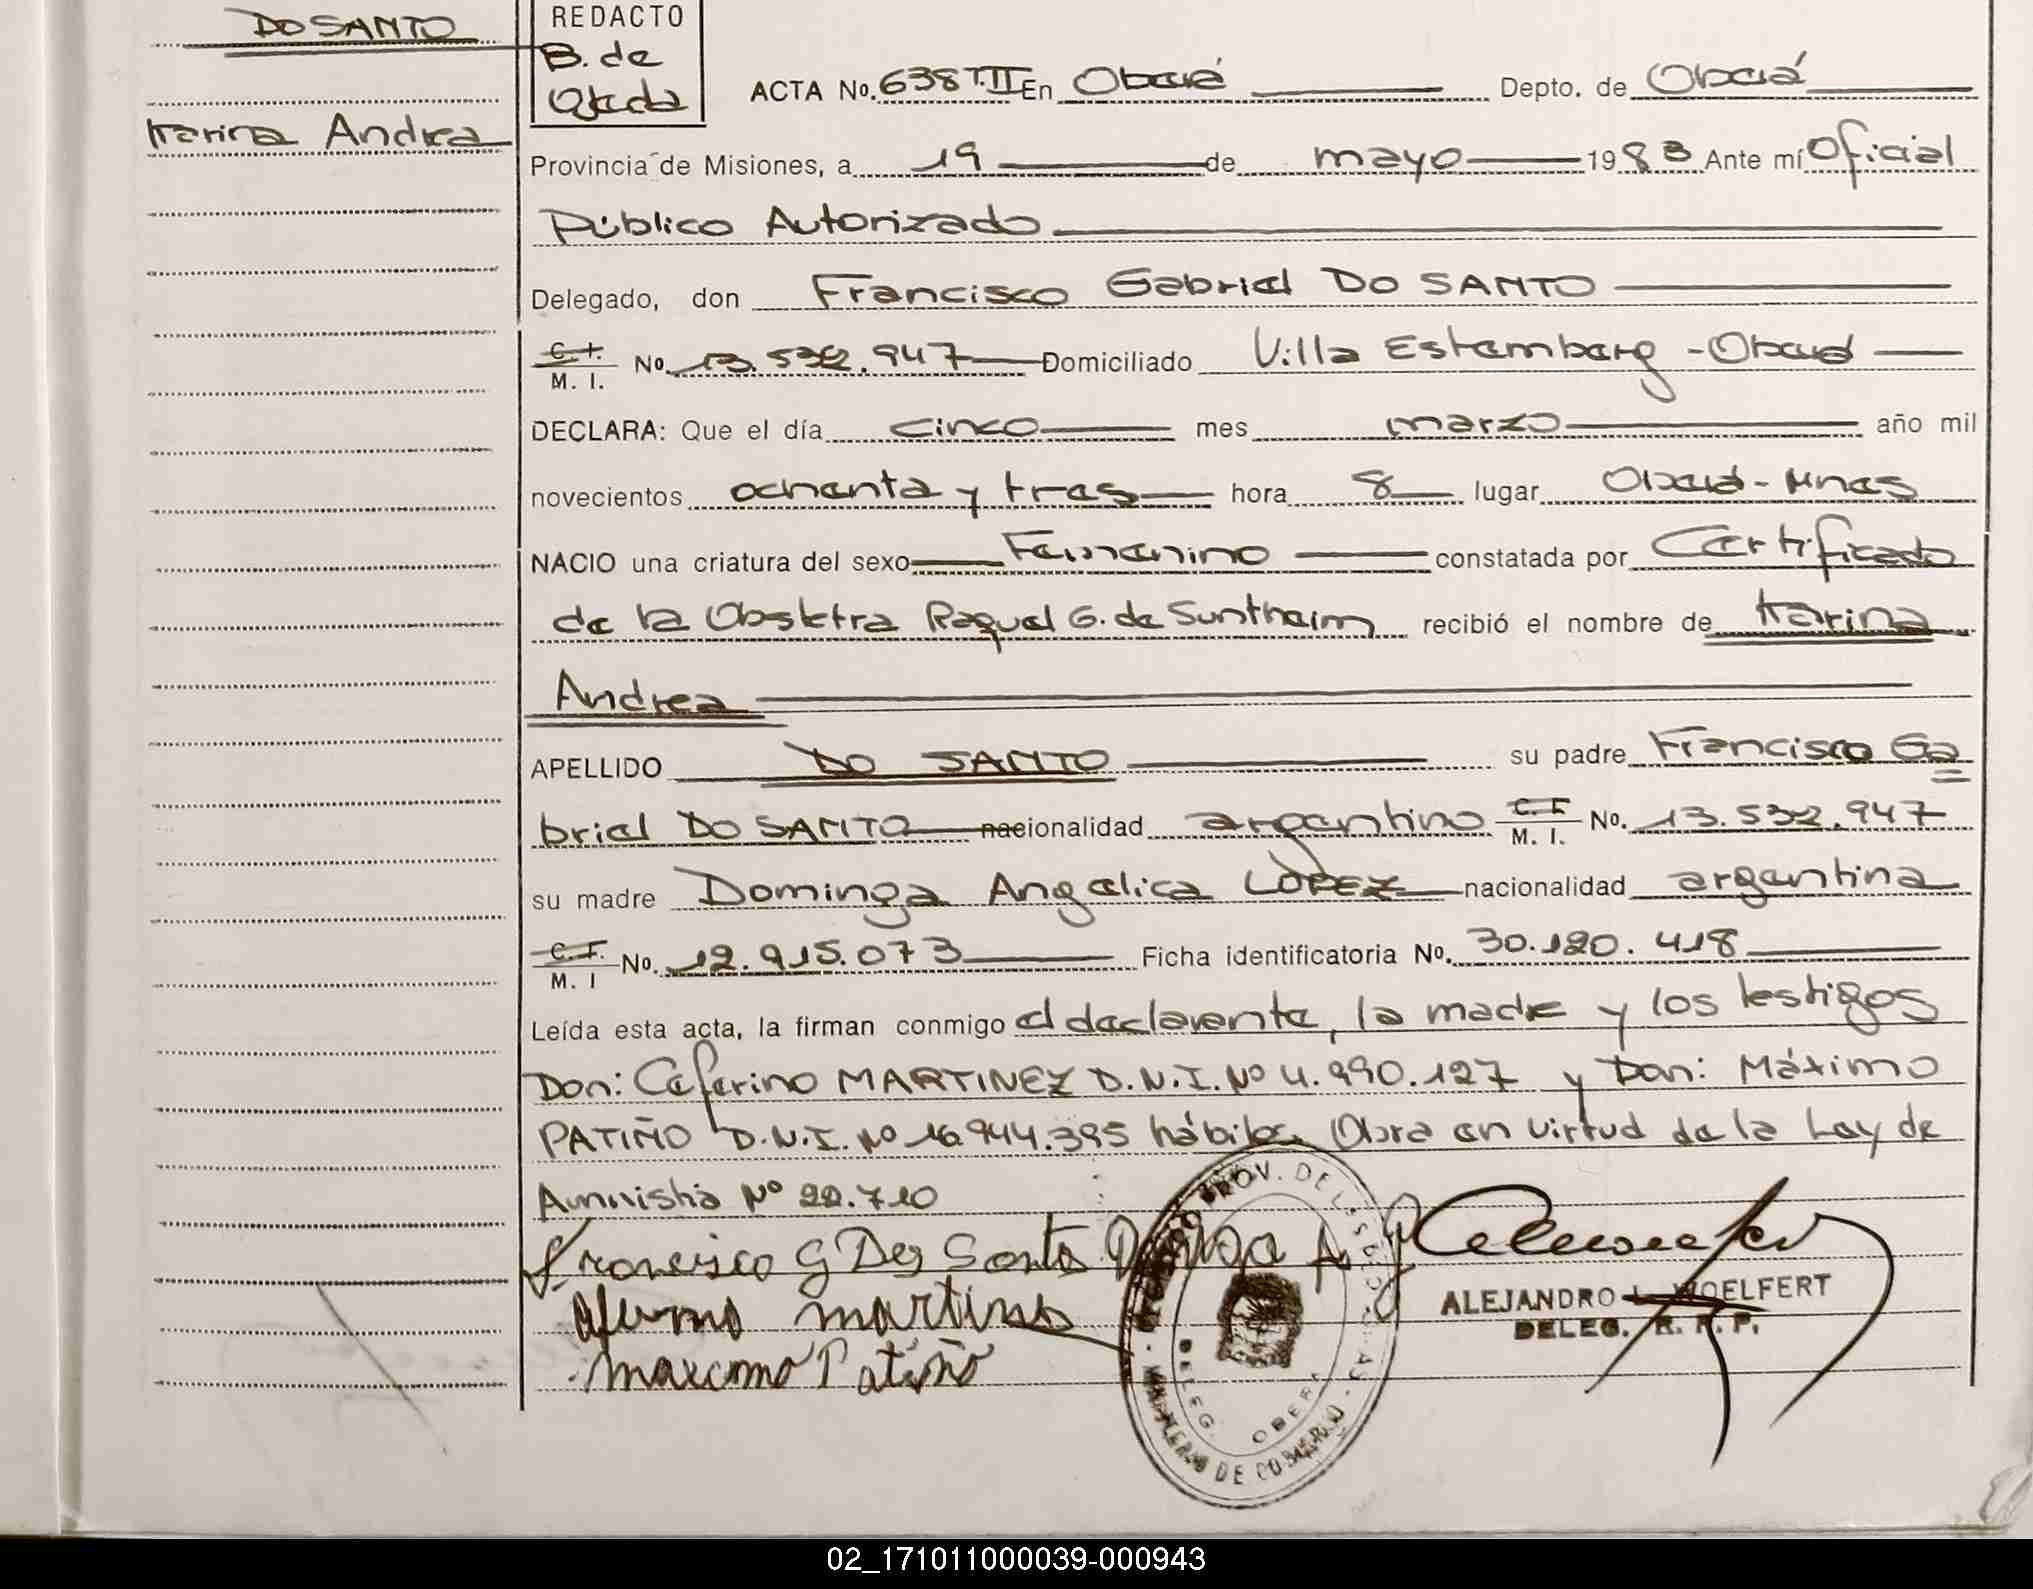 DO SANTO
Karina Andrea
REDACTO
B. de
Ojeda
ACTA No. 638 T.II En Oberá Depto. de Oberá
Provincia de Misiones, a 19 de mayo 1983 Ante mí Oficial
Público Autorizado
Delegado, don Francisco Gabriel DO SANTO
C. I. M. I. No. 13.532.947 Domiciliado Villa Estemberg - Oberá
DECLARA: Que el día cinco mes marzo año mil
novecientos ochenta y tres hora 8 lugar Oberá - Mnes
NACIO una criatura del sexo Femenino constatada por Certificado
de la Obstetra Raquel G. de Suntheim recibió el nombre de Karina
Andrea
APELLIDO DO SANTO su padre Francisco Ga
briel DO SANTO nacionalidad argentino C. I. M. I. No. 13.532.947
su madre Dominga Angelica LÓPEZ nacionalidad argentina
C. I. M. I No. 12.915.073 Ficha identificatoria No. 30.120.418
Leída esta acta, la firman conmigo el declarente, la madre y los testigos
Don: Ceferino MARTINEZ D.N.I. Nº 4.990.127 y Don: Máximo
PATIÑO D.N.I. Nº 16.944.395 hábiles. Obra en virtud de la Ley de
Amnistia Nº 22.710
Francisco G Dos Santo
PROV. DE
MINISTERIO DE GOBIERNO
DELEG. OBERA
ALEJANDRO L. WOELFERT
DELEG. R. P. P.
Patiño
02_171011000039-000943